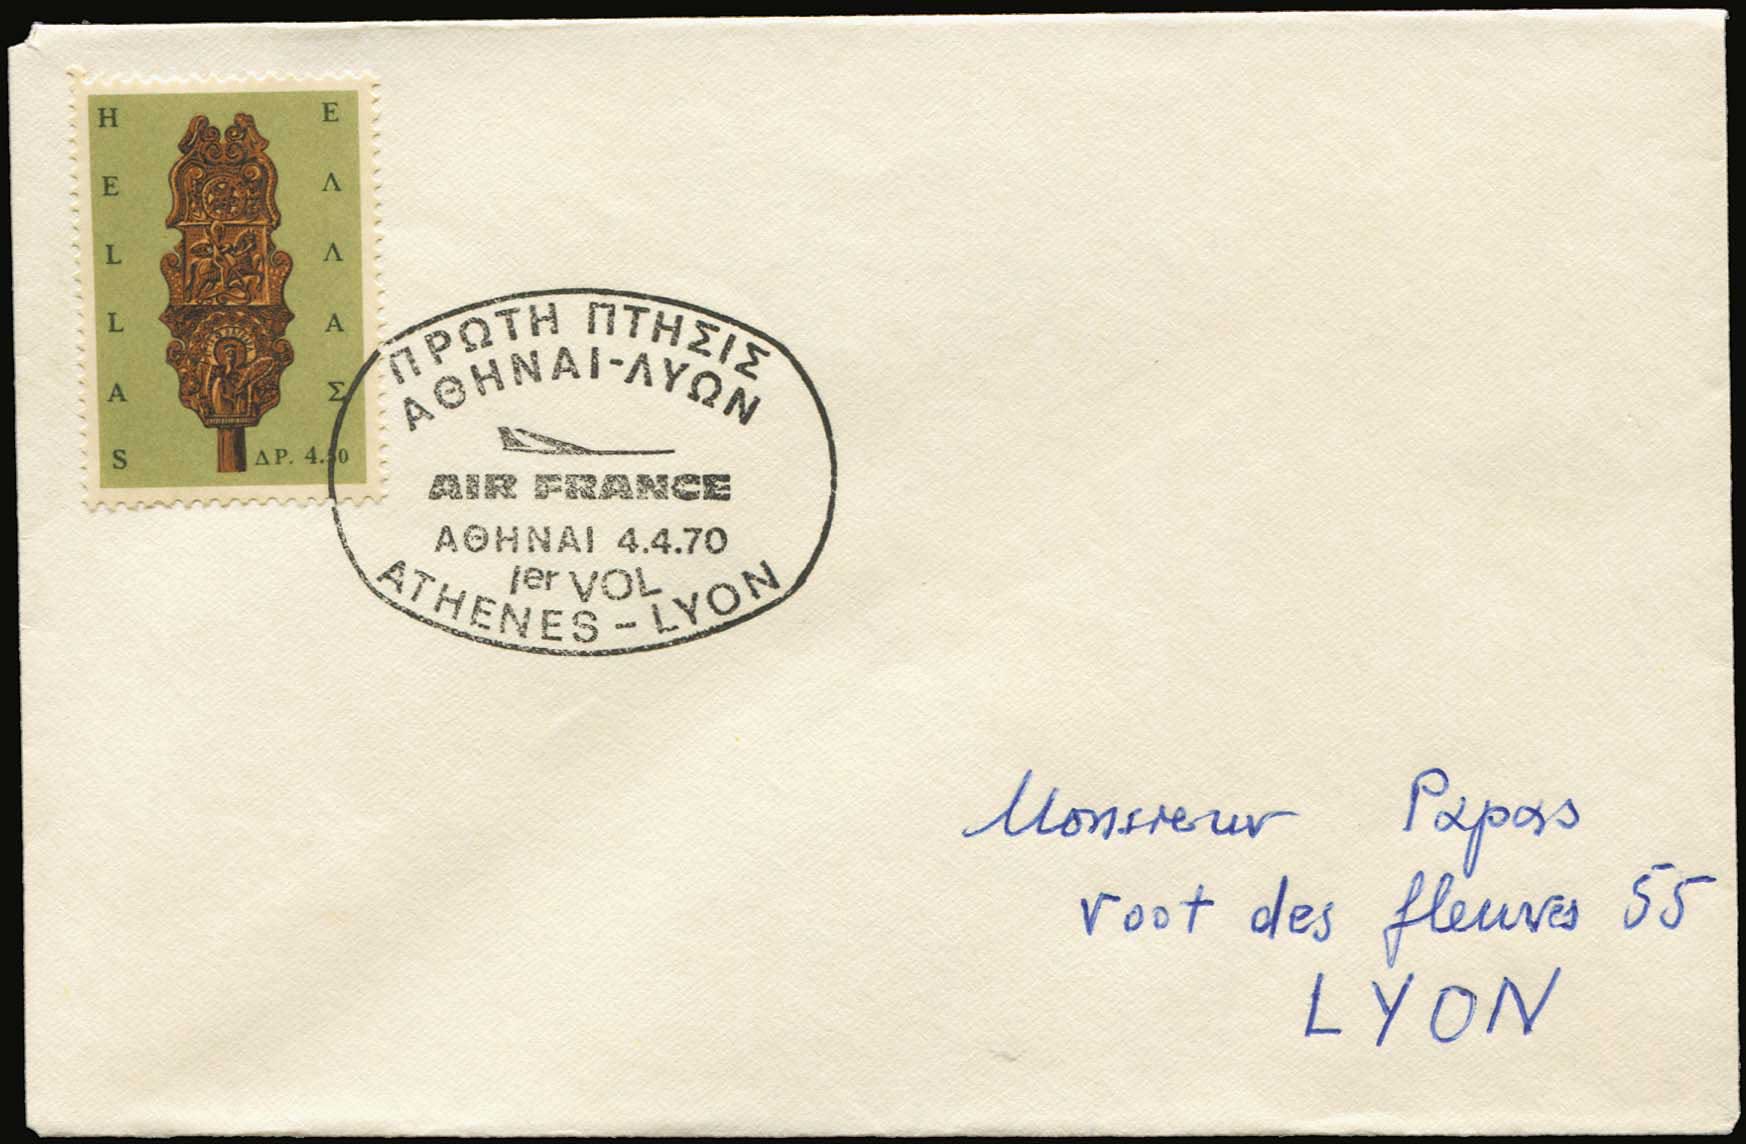 HELLAS
ΕΛΛΑΣ
ΔΡ. 4.50
ΠΡΩΤΗ ΠΤΗΣΙΣ
ΑΘΗΝΑΙ-ΛΥΩΝ
AIR FRANCE
ΑΘΗΝΑΙ 4.4.70
1er VOL
ATHENES - LYON
Monsieur Papas
root des fleuves 55
LYON